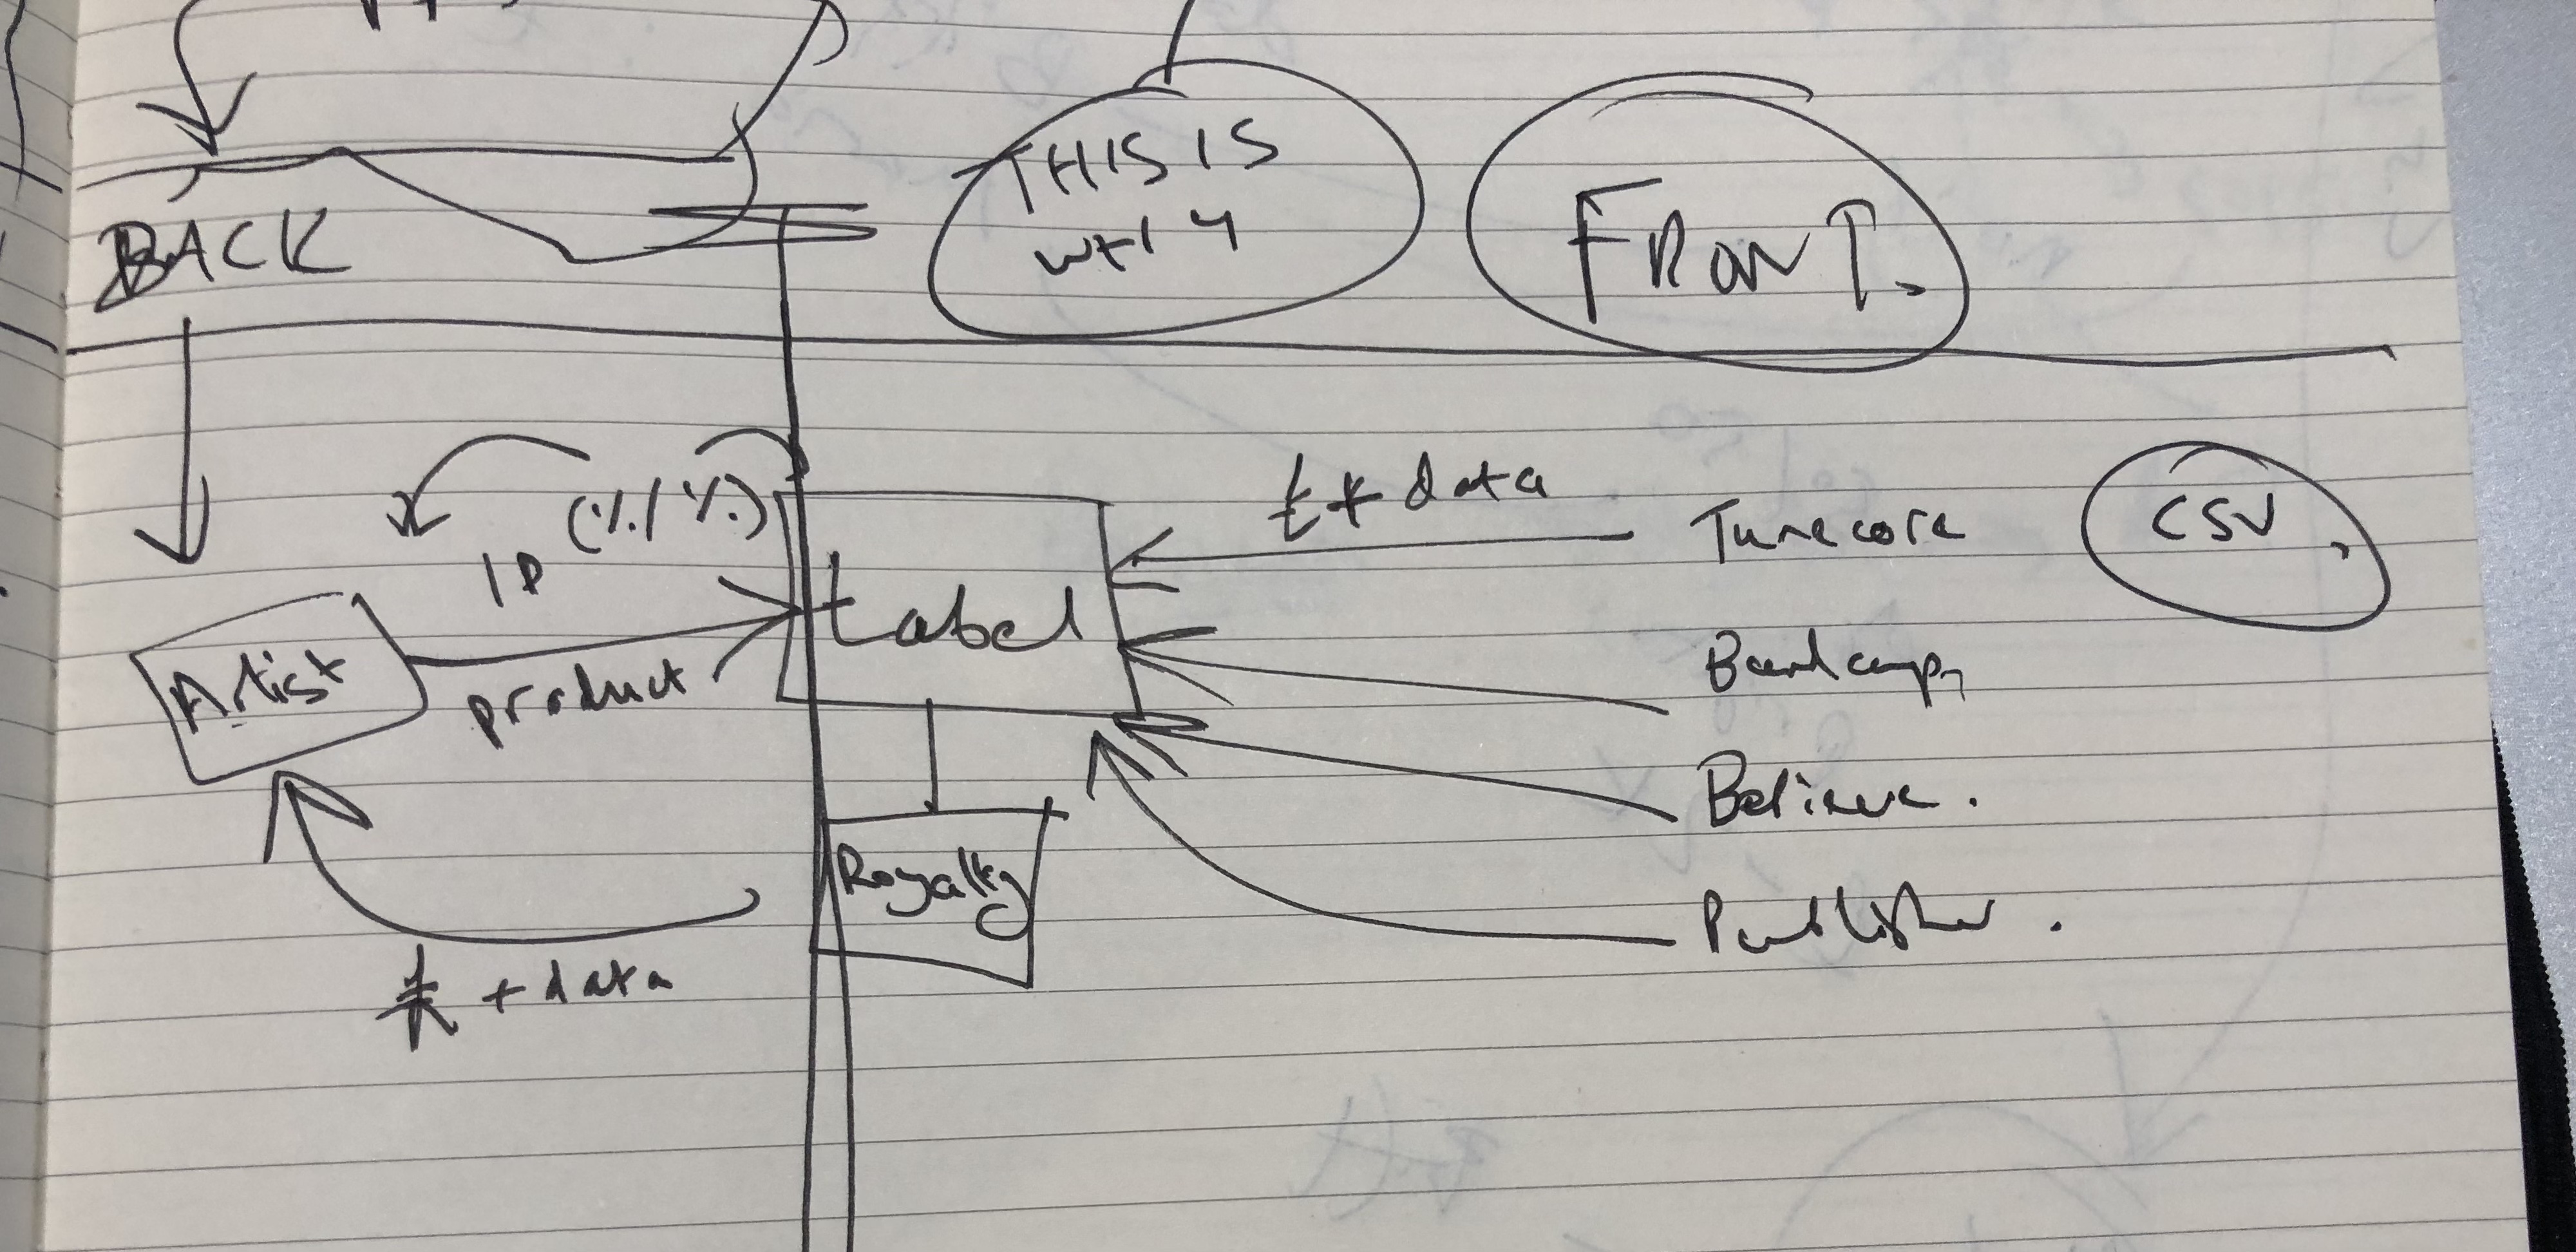 BACK
THIS IS
WHY
FRONT.
(%/%)
IP
product
Artist
Label
£+ data
Tunecore
CSV.
Bandcamp
Believe.
Publisher.
Royalty
+ data